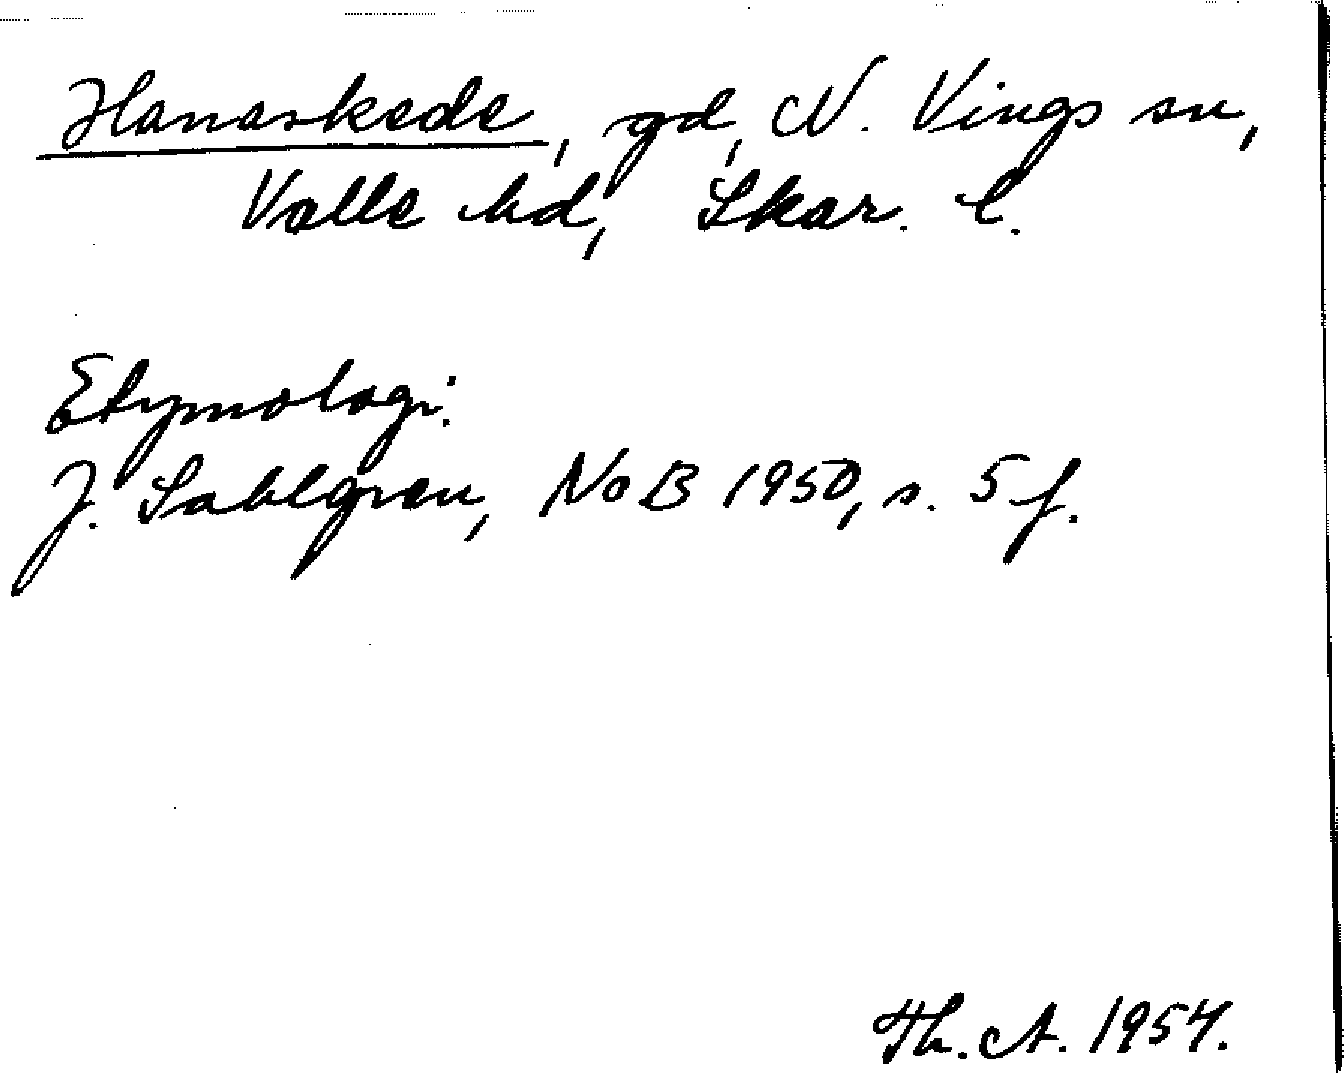 Hanaskede, gd, N. Vings sn,
Valle hd, Skar. l.
Etymologi:
J. Sahlgren, NoB 1950, s. 5 f.
Th. A. 1954.